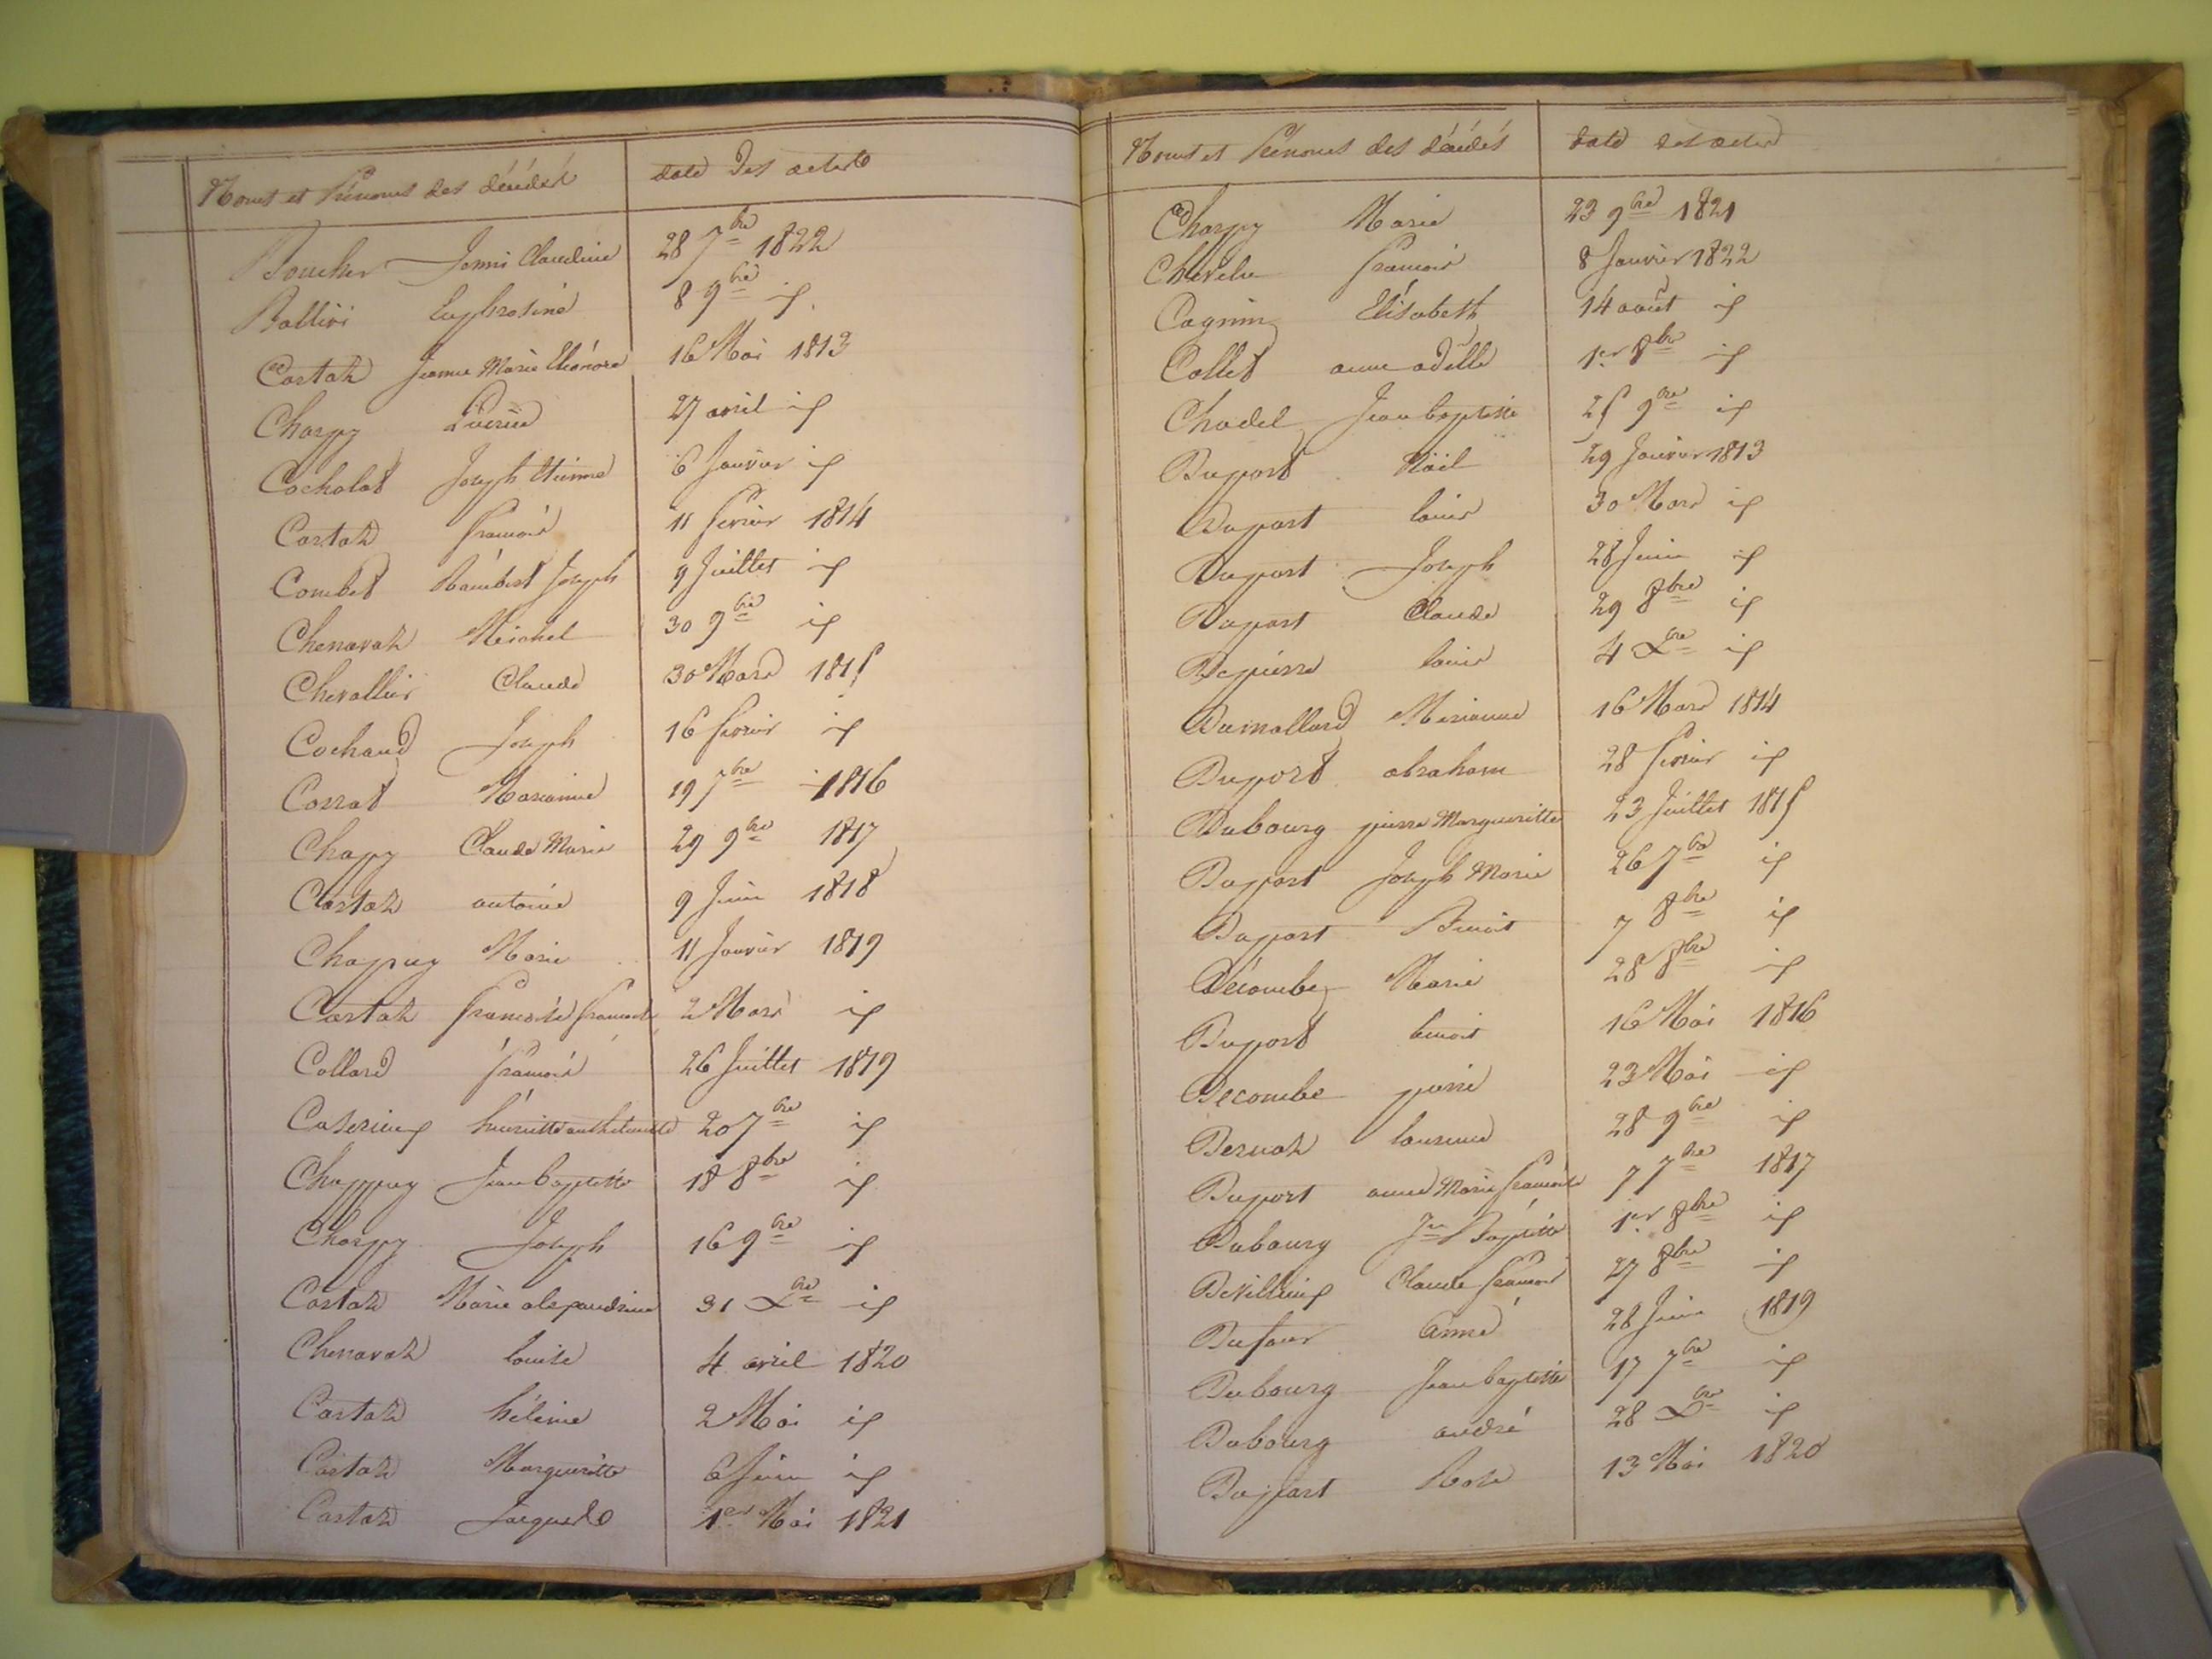 Noms et Prénoms des décédés date des actes
Boucher Jenni Claudine 28 7bre 1822
Ballivi Euphrosine 8 9bre id
Costaz Jeanne Marie Eléonore 16 Mai 1813
Charpy 27 avril id
Cocholat Joseph Etienne 6 Janvier id
Costaz francois 11 fevrier 1814
Combet Rambert Joseph 9 Juillet id
Chenavaz Michel 30 9bre id
Chevallier Claude 30 Mars 1815
Cochaud Joseph 16 fevrier id
Corrat Marianne 19 7bre 1816
Chapy Claude Marie 29 9bre 1817
Costaz antoine 9 Juin 1818
Chappuy Marie 11 Janvier 1819
Costaz francoise 2 Mars id
Collard francois 26 Juillet 1819
20 7bre id
Chappuy Jean baptiste 18 8bre id
Charpy Joseph 16 9bre id
Costaz Marie alexandrine 31 Xbre id
Chenavaz louise 4 avril 1820
Costaz hélène 2 Mai id
Costaz Margueritte 6 Juin id
Costaz Jacques 1er Mai 1821
Noms et Prénoms des décédés date des actes
Charpy Marie 23 9bre 1821
Chevelu francois 8 Janvier 1822
Cagnin Elisabeth 14 août id
Collet anne adelle 1er 8bre id
Chadel Jean baptiste 25 9bre id
Duport Noël 29 Janvier 1813
Duport louis 30 Mars id
Duport Joseph 28 Juin id
Duport Claude 29 8bre id
Depierre louis 4 Xbre id
Dumollard Marianne 16 Mars 1814
Duport abraham 28 fevrier id
Dubourg pierre Margueritte 23 Juillet 1815
Duport Joseph Marie 26 7bre id
Duport Benoit 7 8bre id
Décombe Marie 28 8bre id
Duport benoit 16 Mai 1816
Decombe pierre 23 Mai id
Dernaz laurence 28 9bre id
Duport anne Marie francoise 7 7bre 1817
Dubourg Jn Baptiste 1er 8bre id
Claude francois 27 8bre id
Dufour Anne 28 Juin 1819
Dubourg Jean baptiste 17 7bre id
Dubourg andré 28 Xbre id
Duport Rose 13 Mai 1820